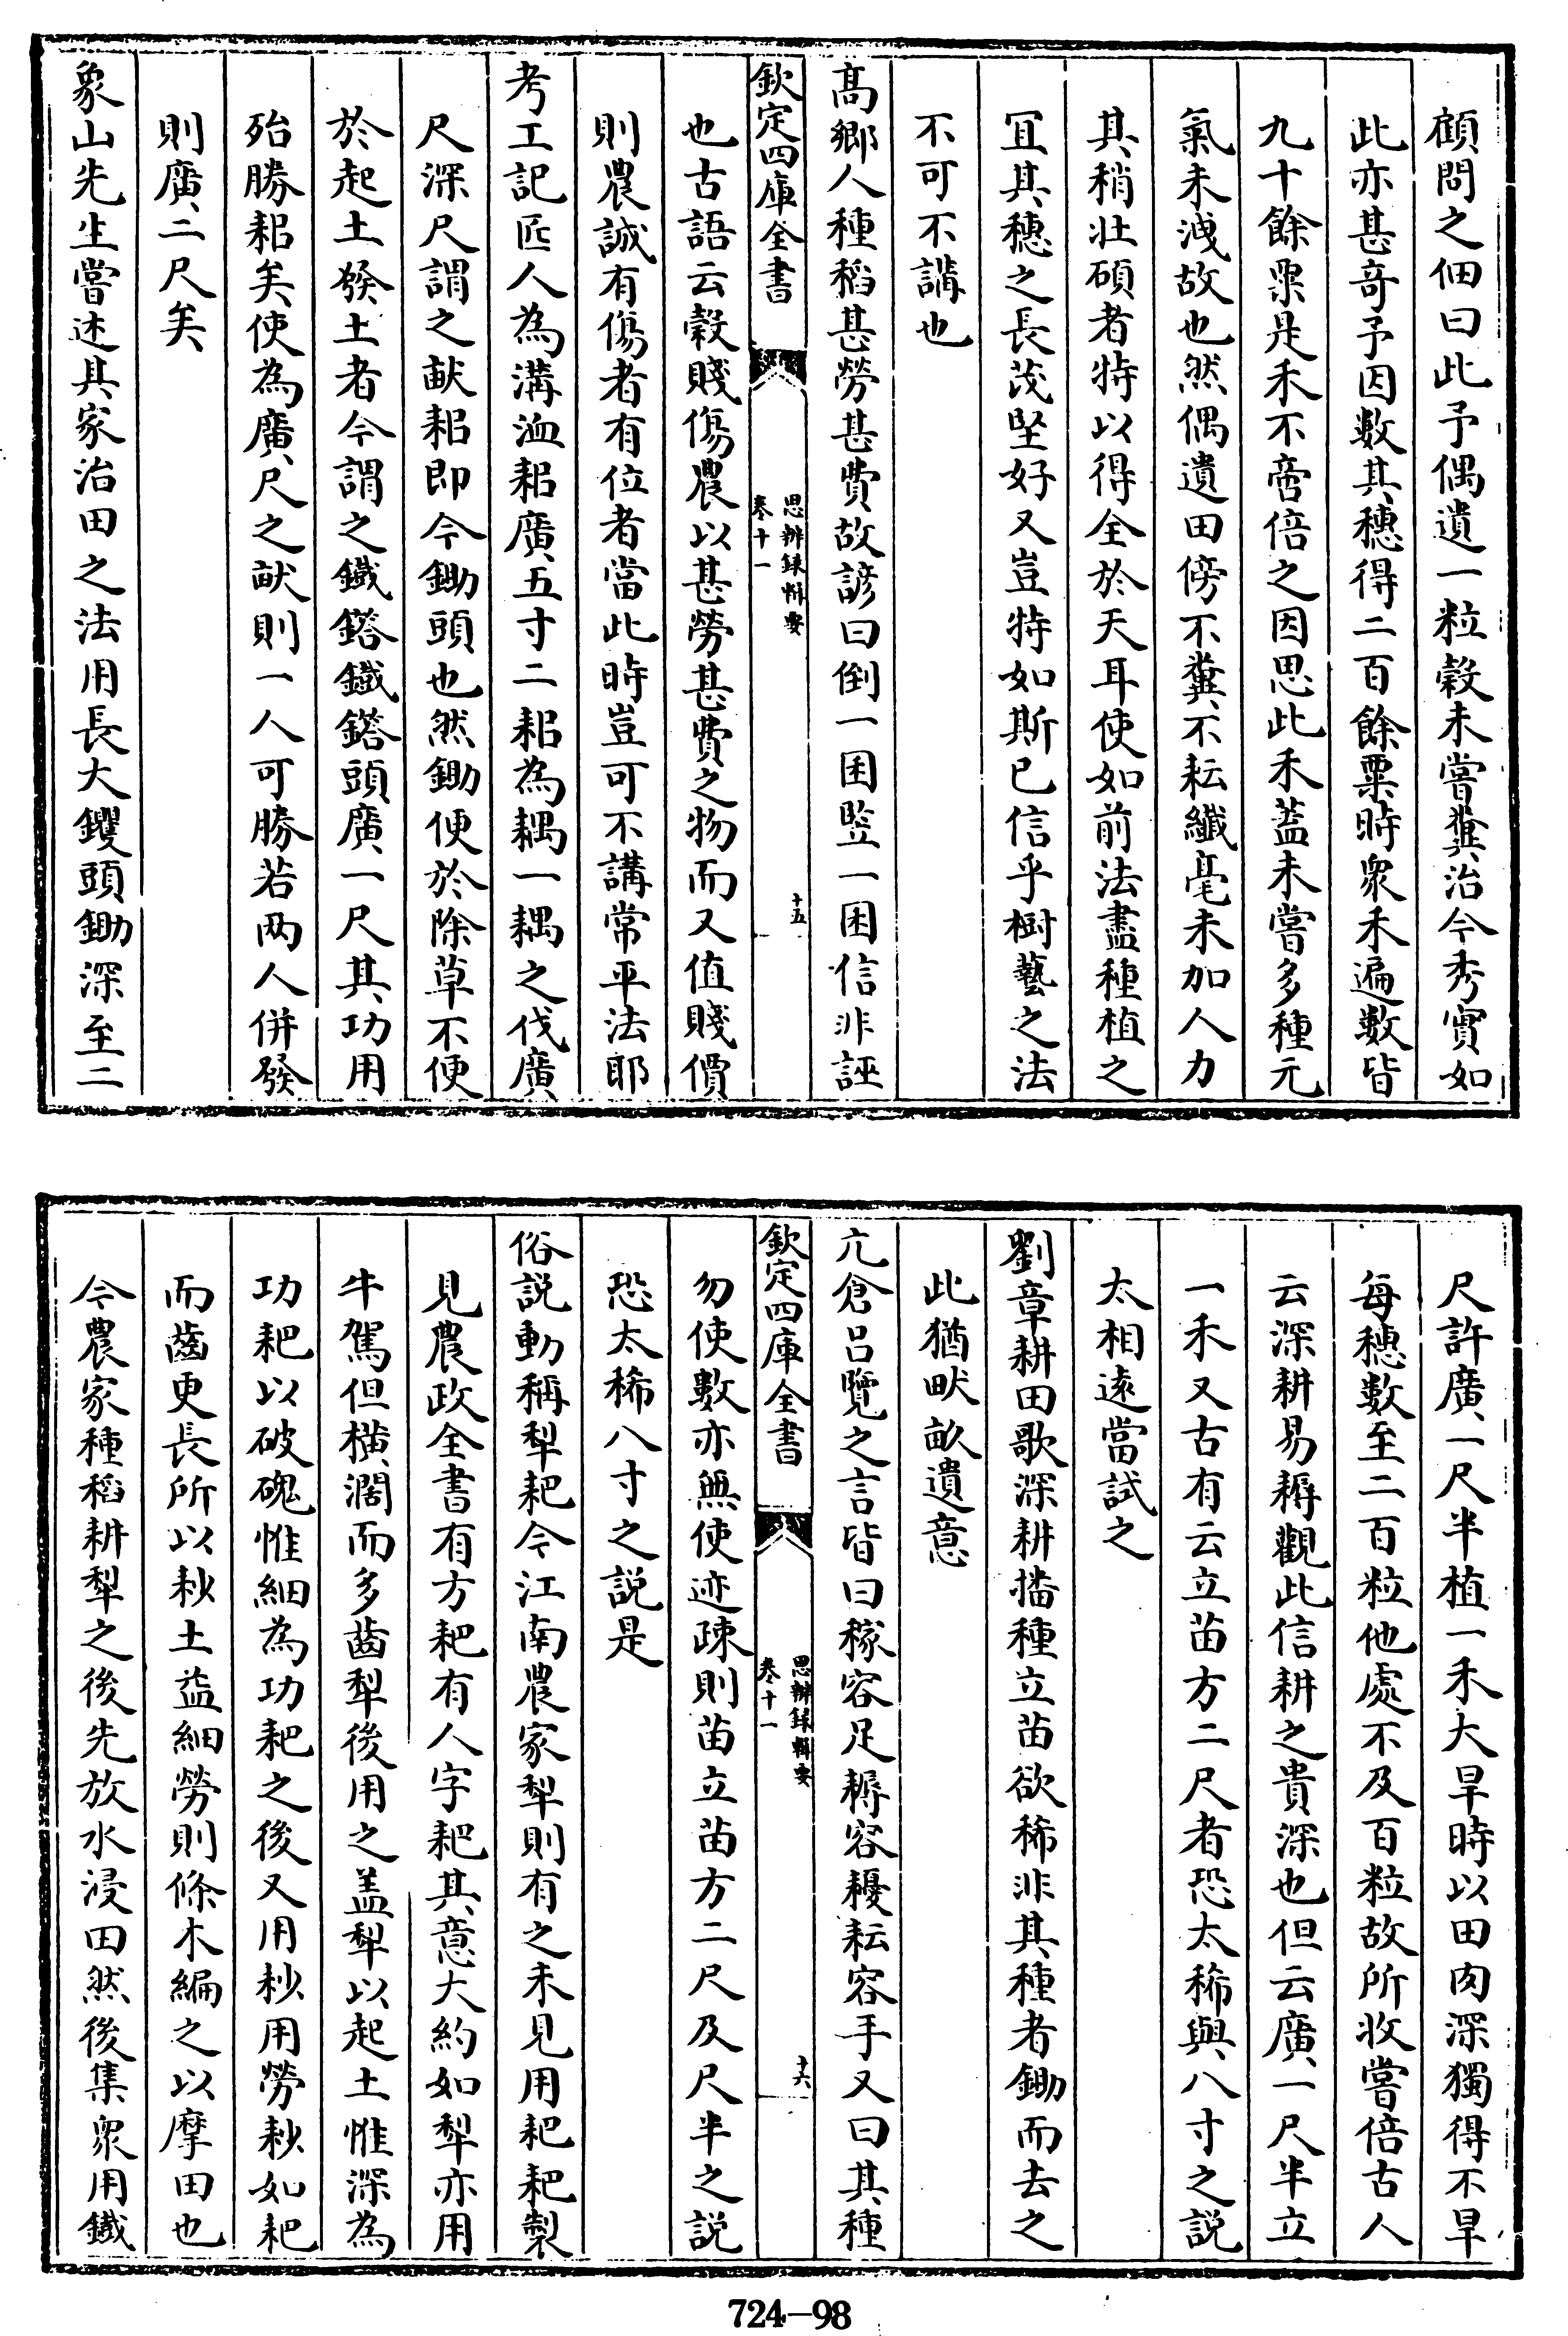 顧問之佃曰此予偶遺一粒榖未嘗糞治今秀實如
此亦甚竒予因數其穗得二百餘粟時衆禾遍數皆
九十餘粟是禾不啻倍之因思此禾葢未嘗多種元
氣未洩故也然偶遺田傍不糞不耘纎毫未加人力
其稍壯碩者特以得全於天耳使如前法盡種植之
冝其穗之長茂堅好又豈特如斯已信乎樹藝之法
不可不講也
髙鄉人種稻甚勞甚費故諺曰倒一囷豎一囷信非誣
欽定四庫全書
思辨録輯要
卷十一
十五
也古語云榖賤傷農以甚勞甚費之物而又值賤價
則農誠有傷者有位者當此時豈可不講常平法耶
考工記匠人為溝洫耜廣五寸二耜為耦一耦之伐廣
尺深尺謂之畎耜即今鋤頭也然鋤便於除草不便
於起土發土者今謂之鐵鎝鐵鎝頭廣一尺其功用
殆勝耜矣使為廣尺之畎則一人可勝若兩人併發
則廣二尺矣
象山先生嘗述其家治田之法用長大钁頭鋤深至二
尺許廣一尺半植一禾大旱時以田肉深獨得不旱
每穗數至二百粒他處不及百粒故所收嘗倍古人
云深耕易耨觀此信耕之貴深也但云廣一尺半立
一禾又古有云立苗方二尺者恐太稀與八寸之說
太相逺當試之
劉章耕田歌深耕播種立苗欲稀非其種者鋤而去之
此猶畎畝遺意
亢倉吕覽之言皆曰稼容足耨容耰耘容手又曰其種
欽定四庫全書
思辨録輯要
卷十一
十六
勿使數亦無使迹疎則苗立苗方二尺及尺半之說
恐太稀八寸之說是
俗說動稱犁耙今江南農家犁則有之未見用耙耙製
見農政全書有方耙有人字耙其意大約如犁亦用
牛駕但横濶而多齒犁後用之盖犁以起土惟深為
功耙以破塊惟細為功耙之後又用耖用勞耖如耙
而齒更長所以耖土益細勞則條木編之以摩田也
今農家種稻耕犁之後先放水浸田然後集衆用鐵
724-98